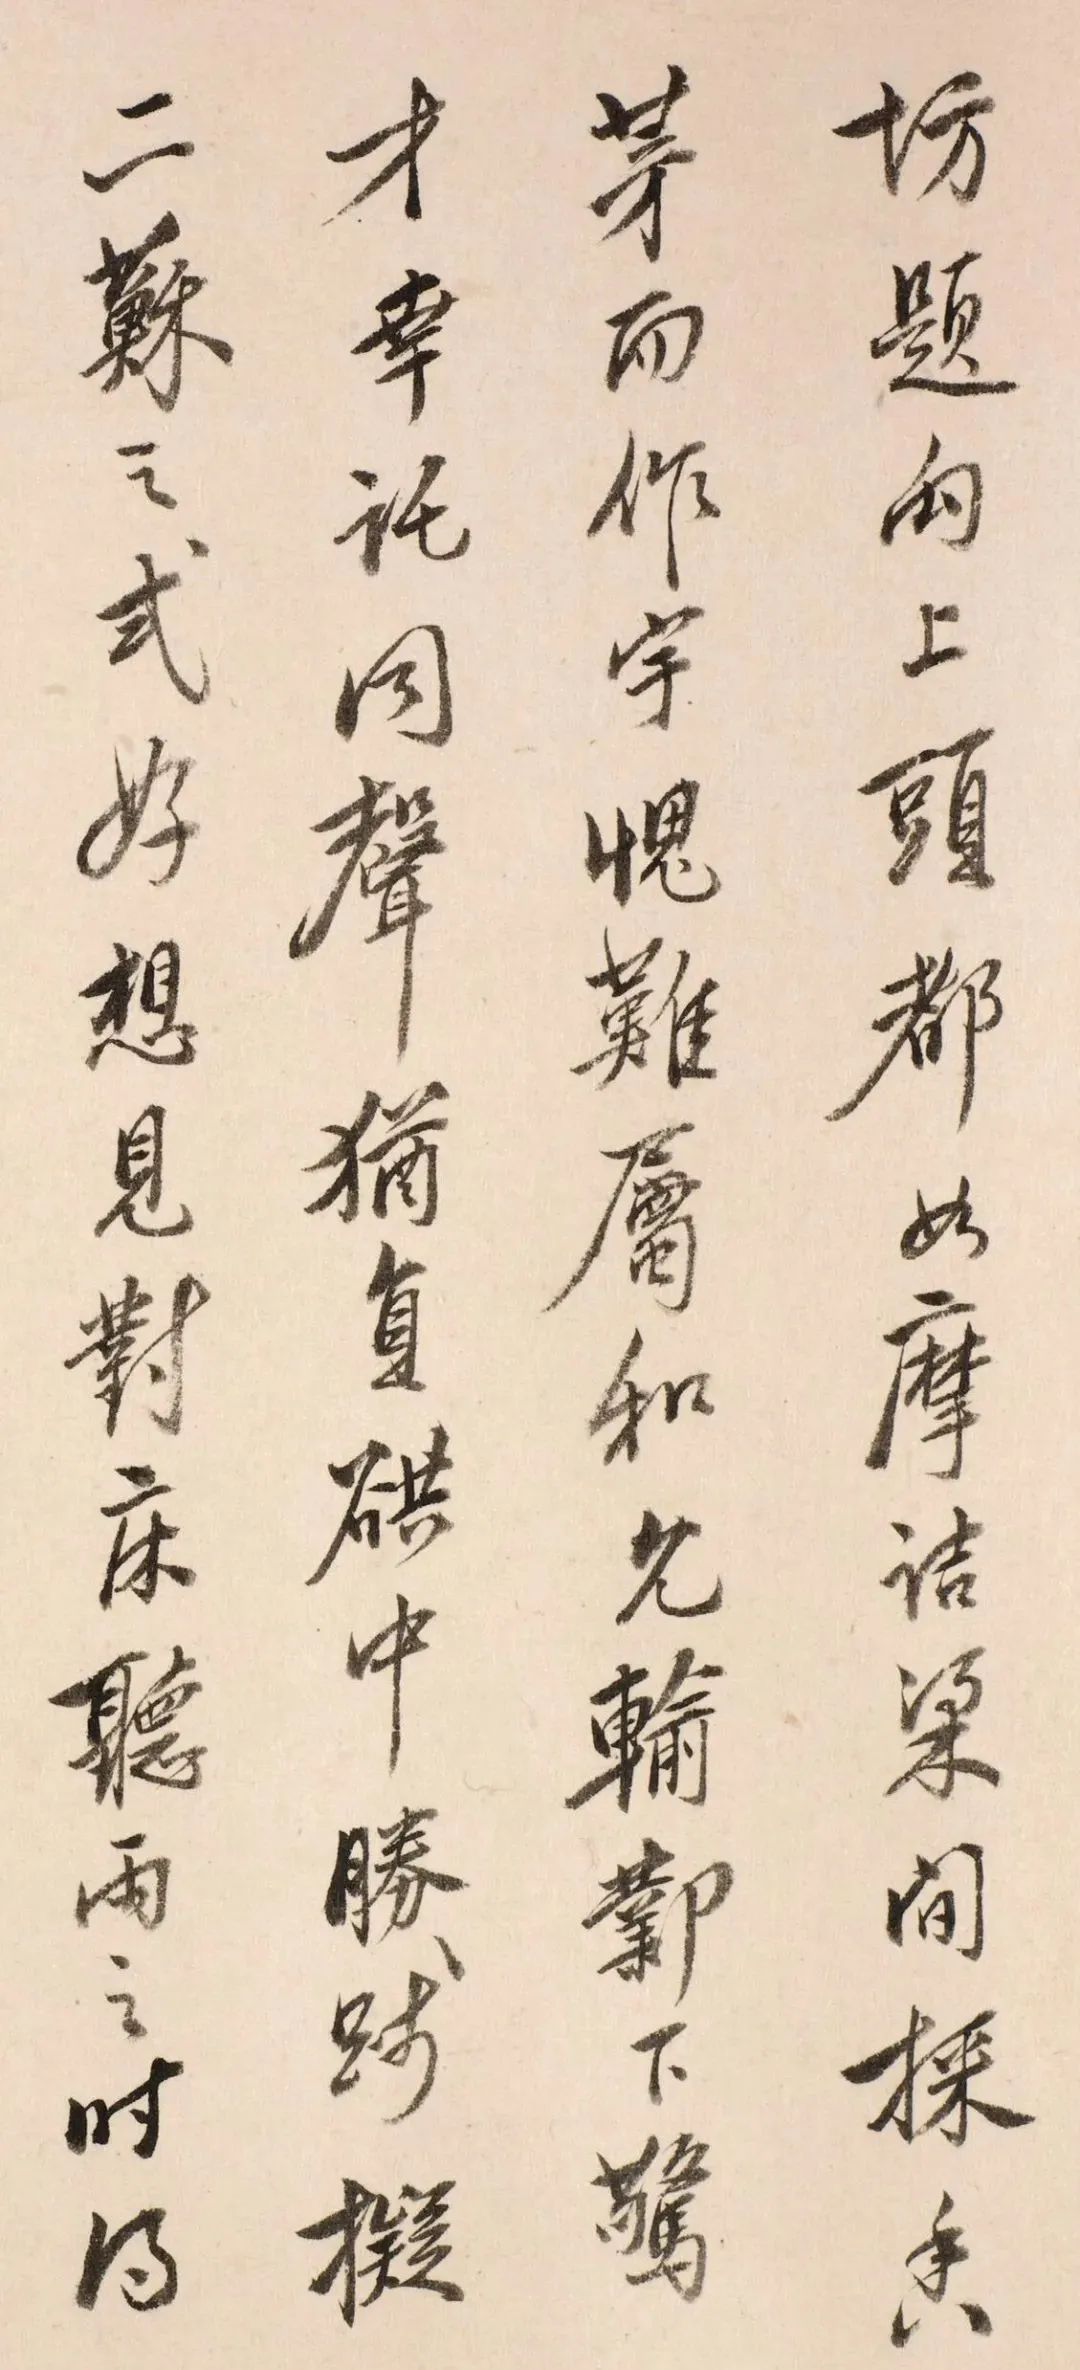 坊題句上頭都如摩詰梁間採香
茅而作宇愧難屬和先輸鄴下驚
才幸託同聲猶負硔中勝踐擬
二蘇之式好想見對床聽雨之時得